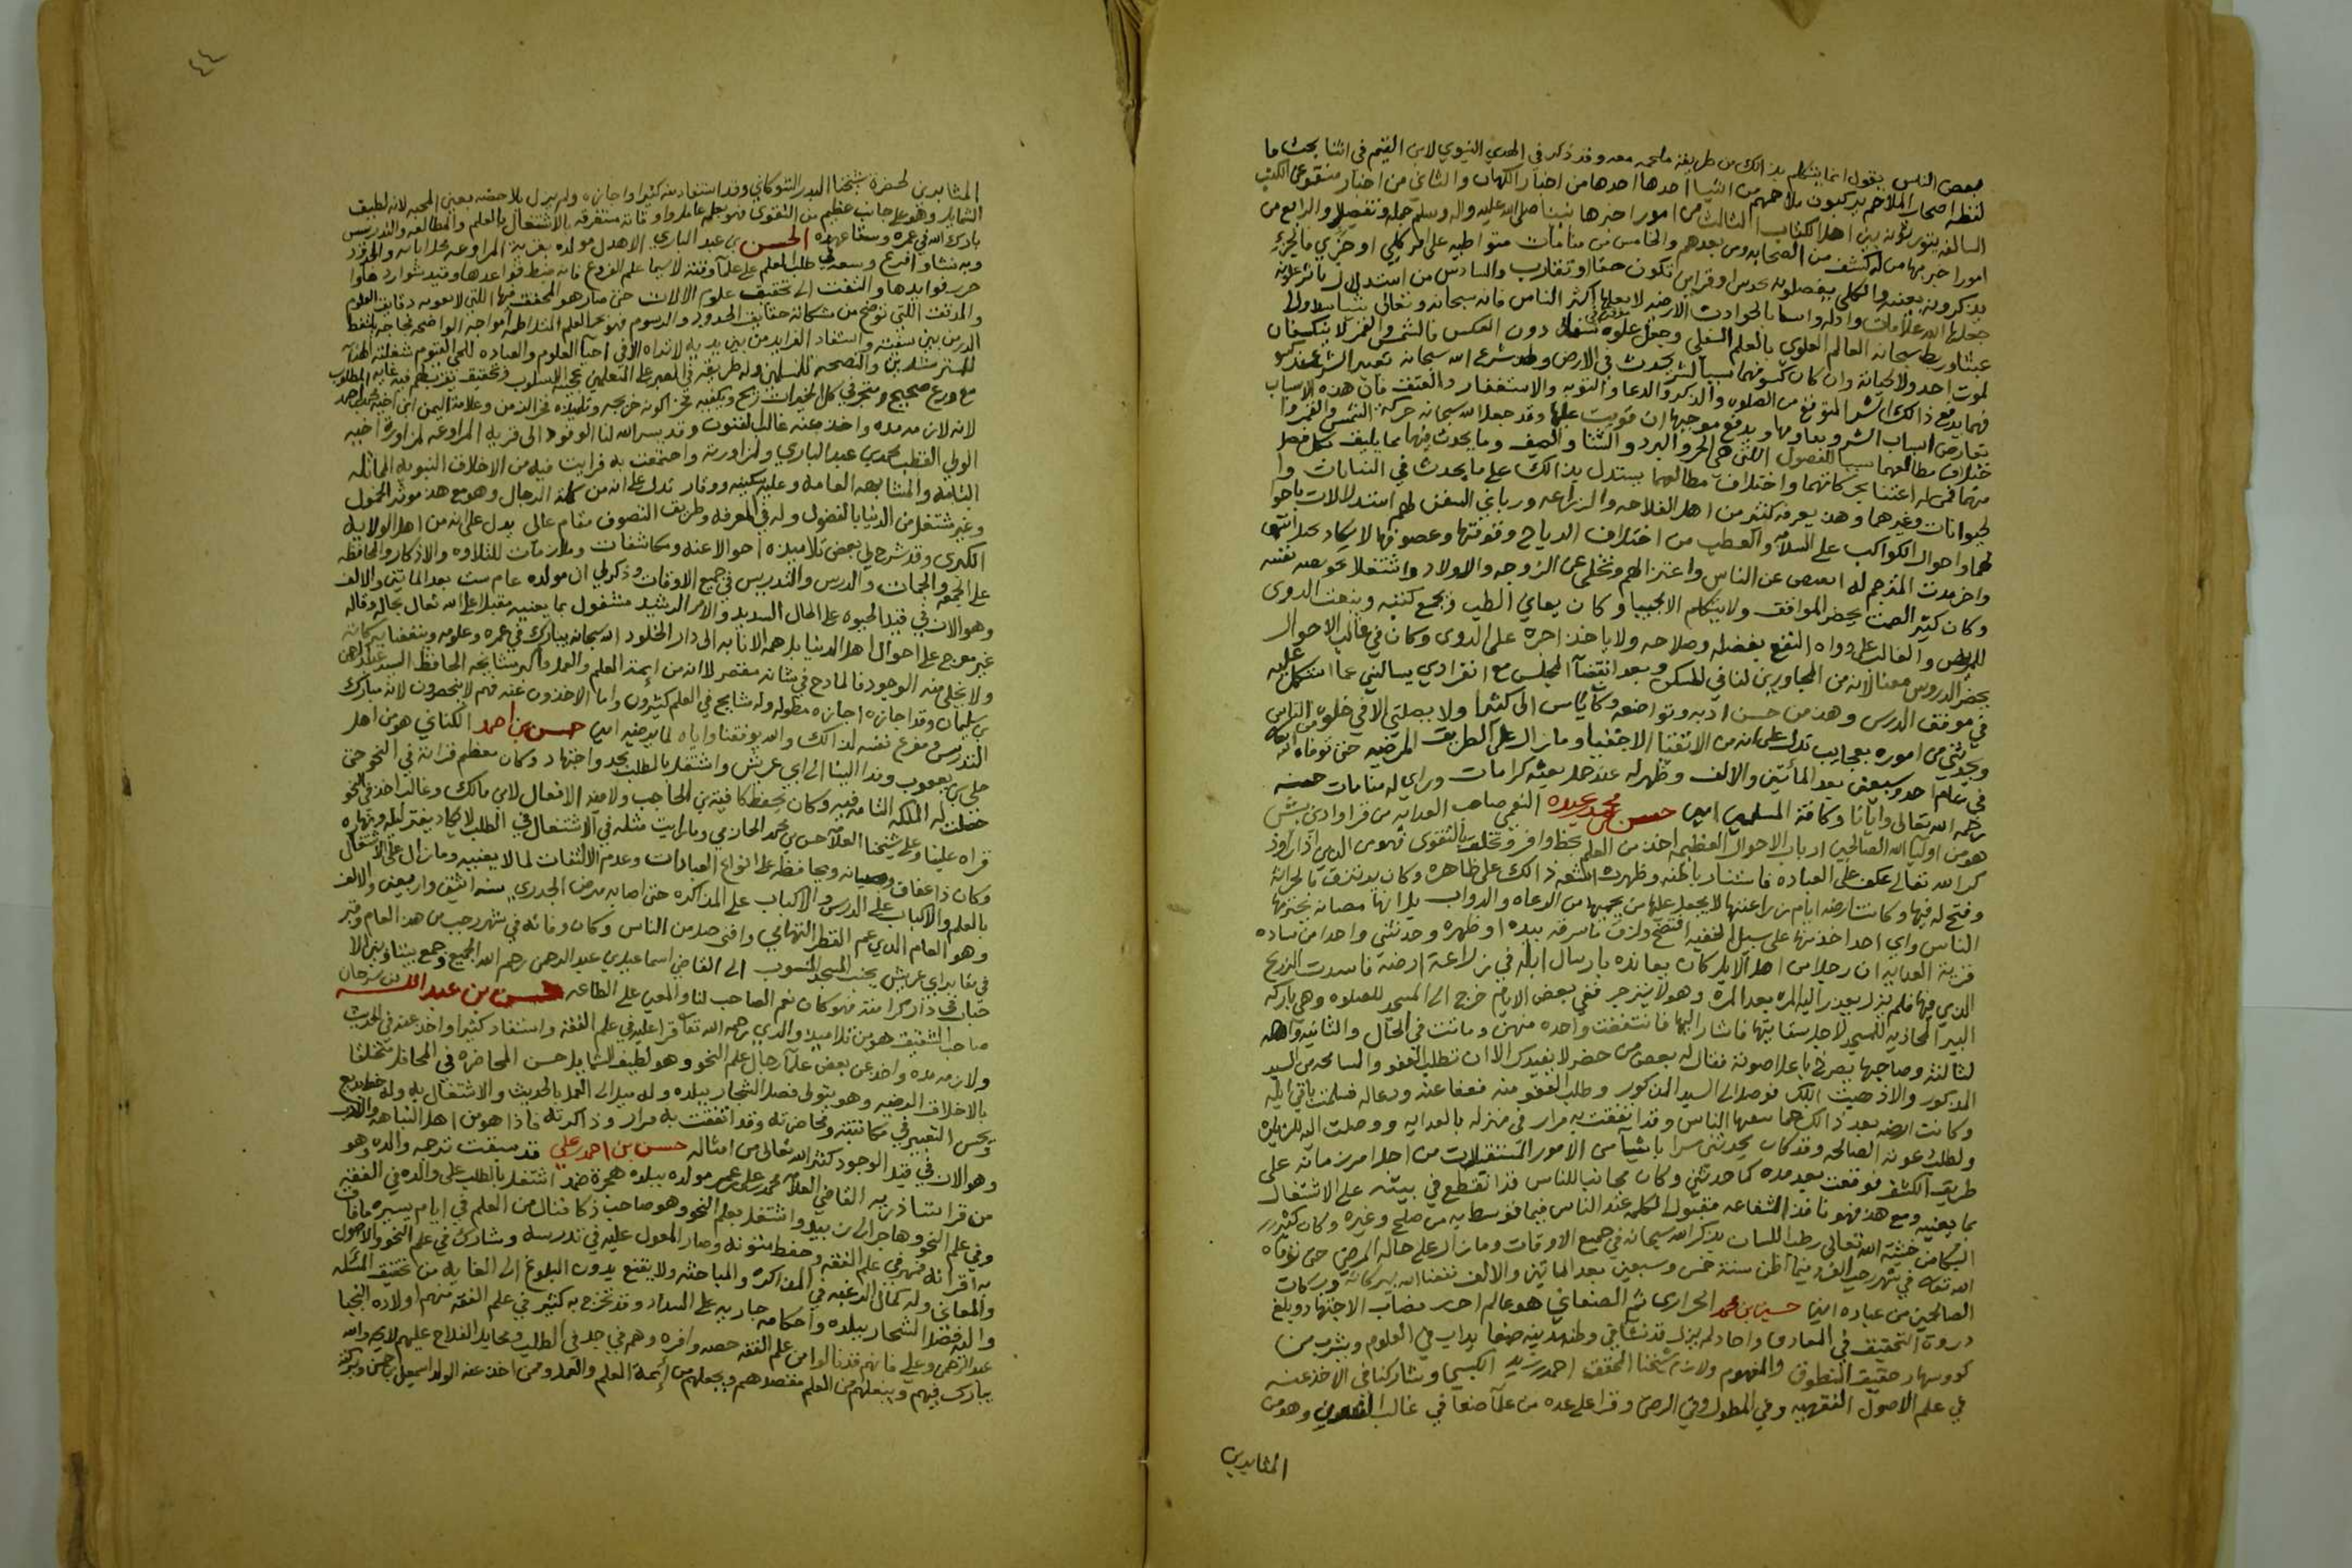 بعض الناس يقول انما يتكلم بذالك من طريقة ملحمه معه وقد ذكر في الهدي النبوي لابن القيم في اثنا بحث ما
لفظه اصحاب الملاحم يركبون ملاحمهم من اشيا احدها احدها من اخبار الكهان والثاني من اخبار منقوله عن الكتب
السالفه يتوارثونه بين اهل الكتاب الثالث من امور اخبر بها نبينا صلى الله عليه واله وسلم جملة وتفصيلا والرابع من
امور اخبر بها من له كشف من الصحابه ومن بعدهم والخامس من منامات متواطيه على امر كلي او جزي فالجزي
يذكرونه بعينه والكلي يفصلونه بحدس او قراين تكون حقا او تقارب والسادس من استدلال باثار علويه
جعلها الله علامات وادله واسبابا لحوادث الارضيه لا يعلمها اكثر الناس فانه سبحانه وتعالى
ربط سبحانه العالم العلوي بالعالم السفلي وجعل علوه دون العكس فالشمس والقمر لا ينكسفان
لموت احد ولا لحياته وان كان كسوفهما سببا لشر يحدث في الارض ولهذا شرع الله سبحانه تغيير الشر عند كسو
فهما بما يدفع ذالك الشر المتوقع من الصلوه والذكر والدعا والتوبه والاستغفار والعتق فان هذه الاسباب
تعارض اسباب الشر وتقاومها وتدفع موجبها ان قويت عليها وقد جعل الله سبحانه حركة الشمس والقمر وا
ختلاف مطالعهما سببا للفصول التي هي الحر والبرد والشتا والصيف وما يحدث فيها مما يليق بكل فصل
منها فمن له اعتنا بحركاتهما واختلاف مطالعهما يستدل بذالك على ما يحدث في النباتات وا
لحيوانات وغيرهما وهذا يعرفه كثير من اهل الفلاحه والزراعه ورباني السفن لهم استدلالات باحوا
لهما واحوال الكواكب على السلامه والعطب من اختلاف الرياح وقوتها وعصوفها لا يكاد يختل انتهى
واخر مدة المترجم له انقبض عن الناس واعتزالهم وتخلى عن الزوجه والاولاد واشتغل بخويصة نفسه
وكان كثير الصمت يحضر المواقف ولا يتكلم الا مجيبا وكان يعاني الطب ويجمع كتبه وينعت الدوى
للمريض والغالب على دواه النفع بفضله وصلاحه ولا ياخذ اجرة على الدوى وكان في غالب الاحوال
يحضر الدروس معنا لانه من المجاورين لنا في المسكن وبعد انقضا المجلس مع انفرادي يسالني عما اشكل عليه
في موقف الدرس وهذا من حسن ادبه وتواضعه وكان يانس الي كثيرا ولا يصلني الا في خلوة من الناس
ويحدثني من اموره بعجايب تدل على انه من الاتقيا الاخفيا وما زال على الطريق المرضيه حتى توفاه الله
في عام احد وسبعين بعد المأتين والالف وظهر له عند حمل نعشه كرامات وراي له منامات حسنه
رحمه الله تعالى وايانا وكافة المسلمين امين حسن بن محمد عبده النعمي صاحب العدايه من قرا وادي بيش
هو من اوليا الله الصالحين ارباب الاحوال العظيمه اخذ من العلم بحظ وافر وتخلق بالتقوى فهو من الذين اذا راوا ذ
كر الله تعالى عكف على العباده فاستنار باطنه وظهرت اشعة ذالك على ظاهره وكان يرتزق بالحراثة
وفتح له فيها وكانت ارضه ايام زراعتها لا يجعل عليها من يحميها من الرعاه والدواب بل انها مصانه يحترمها
الناس واي احد اخذ منها على سبيل الخفيه افتضح ولزق ما سرقه بيده او ظهره وحدثني واحد من ساده
قرية العدايه ان رجلا من اهل الابل كان يعانده بارسال ابله في زراعة ارضه فافسدت الزرع
الذي فيها فلم يزل يعذر اليه المره بعد المره وهو لا ينزجر ففي بعض الايام خرج الى المسجد للصلوه وهي باركه
البير المحاذيه للمسجد لاجل سقايتها فاشار اليها فانتفخت واحده منهن وماتت في الحال والثانيه وا
لثالثه وصاحبها يصرخ باعلا صوته فقال له بعض من حضر لا يفيدك الا ان تطلب العفو والمسامحه من السيد
المذكور والا ذهبت ابلك فوصل الى السيد المذكور وطلب العفو منه فعفا عنه ودعا له فسلمت باقي ابله
وكانت ارضه بعد ذالك حما معها الناس وقد اتفقت به مرار في منزله بالعدايه ووصلت اليه للزياره
ولطلب دعوته الصالحه وقد كان يحدثني سرا باشيا من الامور المستقبلات من احوال امر زمانه على
طريق الكشف فوقعت بعد مده كما حدثني وكان مجانبا للناس قد انقطع في بيته على الاشتغال
بما يعنيه ومع هذا فهو نافذ الشفاعه مقبول الكلمه عند الناس فيما توسط به من صلح وغيره وكان كثير
البكا من خشية الله تعالى رطب اللسان بذكر الله سبحانه في جميع الاوقات وما زال على حاله المرضي حتى توفاه
الله تعالى في شهر رجب الفرد فيما اظن سنة خمس وسبعين بعد الماتين والالف نفعنا الله ببركاته وبركات
الصالحين من عباده امين حسين بن محمد الحرازي ثم الصنعاني هو عالم احرز قصاب الاجتهاد وبلغ
ذروة التحقيق في المعارف واجاد لم يزل منذ نشا في وطنه مدينة صنعا يداب في العلوم ويشرب من
كووسها رحيق المنطوق والمفهوم ولازم شيخنا المحقق احمد بن زيد الكبسي وشاركنا في الاخذ عنه
في علم الاصول الفقهيه وفي المطول وفي الرضي وقرا على عده من علما صنعا في غالب الفنون وهو من
المثابرين
٤٤
المثابرين لحضرة شيخنا البدر الشوكاني وقد استفاد منه كثيرا واجازه ولم يزل يلاحضه بعين المحبه لانه لطيف
الشمايل وهو على جانب عظيم من التقوى فهو بعلمه عامل واوقاته مستغرقه بالاشتغال بالعلم والمطالعه والتدريس
بارك الله في عمره وسقا عهده الحسن بن عبد الباري الاهدل مولده بقرية المراوعه محل ابائه والجدود
وبه نشا وترعرع وسعد في طلب العلم على علما وقته لاسيما علم الفروع فانه ضبط قواعدها وقيد شواردها وا
حرز فوايدها والتفت الى تحقيق علوم الالات حتى صار هو المحقق فيها التي لا يعوته دقايق العلوم
والمدقق اللتي توضح من مشكاته حقايق الحدود والرسوم فهو بحر العلم المتلاطمه امواجه الواضحه فجاجه يلتقط
الدر من بين شفتيه ويستفاد الفرايد من بين يديه لا تراه الا في احيا العلوم والعباده للحي القيوم شغلته الهدايه
للمسترشدين والنصحه للمسلمين وله طريقة في الصبر على المتعلمين عجيبة الاسلوب وتحقيق يفيد الطالب فيه غاية المطلوب
مع ورع صحيح ومتجر في كل الخيرات ربيح ويكفيه فخرا كونه خريجه وتلميذه فخر الزمن وعلامة اليمن ابن اخيه محمد بن احمد
لانه لازمه مده واخذ عنه غالب الفنون وقد يسر الله لنا الوفود الى قرية المراوعه لزياورة اخيه
الولي القطب محمد بن عبد الباري ولزياورته واجتمعت به فرايت فيه من الاخلاق النبويه المماثله
التامه والمشابهه العامه وعليه سكينه ووقار تدل على انه من كملة الرجال وهو مع هذا موثر الخمول
وغير مشتغل من الدنيا بالفضول وله في المعرفه وطريق التصوف مقام عالي يدل على انه من اهل الولايه
الكبرى وقد شرح لي بعض تلاميذه احوالا عنه ومكاشفات وملازمات للتلاوه والاذكار والمحافظه
على الجمعه والجماعات والدرس والتدريس في جميع الاوقات وذكر لي ان مولده عام ست بعد المائتين والالف
وهو الان في قيد الحيوه على الحال السديد والامر الرشيد مشغول بما يعنيه مقبلا على الله تعالى بحاله وقاله
غير معرج على احوال اهل الدنيا بل همه الانابه الى دار الخلود الله سبحانه يبارك في عمره وعلومه وينفعنا ببركاته
ولا يخلي منه الوجود فالمادح في شانه مقصر لانه من ايمة العلم والعمل واكبر مشايخه الحافظ السيد عبد الرحمن
بن سليمان وقد اجازه اجازه مطوله وله مشايخ في العلم كثيرون واما الاخذون عنه فهم لا ينحصرون لانه مبارك
التدريس ومفرغ نفسه لذالك والله يوفقنا واياه لما يرضيه امين حسن بن احمد الكناني هو من اهل
حلي بن يعقوب وفد الينا الى ابي عريش واشتغل بالطلب بجد واجتهاد وكان معظم قراته في النحو حتى
حصلت له الملكه التامه فيه وكان يحفظ كافية بن الحاجب ولامية الافعال لابن مالك وغالب اخذه في النحو
قراه علينا وعلى شيخنا العلامه حسن بن محمد الحازمي وما رايت مثله في الاشتغال في الطلب لا يكاد يفتر ليله ونهاره
وكان ذا عفاف وصيانه ومحافظه على انواع العبادات وعدم الالتفات لما لا يعنيه وما زال على الاشتغال
بالعلم والاكباب على الدرس والاكباب على المذاكره حتى اصابه مرض الجدري سنة اثنين واربعين والالف
وهو العام الذي عم القطر التهامي وافنى جملا من الناس وكان وفاته في شهر رجب من هذا العام وقبر
في مقابر ابي عريش بجنب المسجد المنسوب الى القاضي اسماعيل بن عبد الرحمن رحم الله الجميع وجمع بيننا وبين الا
حباب في دار كرامته فهو كان نعم الصاحب لنا والمعين على الطاعه حسن بن عبد الله بن سرحان
صاحب الشقيق هو من تلاميذ والدي رحمه الله تعالى قرا عليه في علم الفقه واستفاد كثيرا واخذ عنه في الحديث
ولازمه مده واخذ عن بعض علما رجال علم النحو وهو لطيف الشمايل حسن المحاضره في المحافل متخلقا
بالاخلاق الرضيه وهو يتولى فصل الشجار ببلده وله ميل الى العمل بالحديث والاشتغال به وله خط بديع
ويحسن التعبير في مكاتبته ومحاضرته وقد اتفقت به مرار وذاكرته فاذا هو من اهل النباهه
وهو الان في قيد الوجود كثر الله تعالى من امثاله حسن بن احمد بن علي قد سبقت ترجمة والده وهو
من قرابتنا ذرية القاضي العلامه محمد بن علي بن عمر مولده ببلده هجرة ضمد اشتغل بالطلب على والده في الفقه
وفي علم النحو وهاجر الى زبيد واشتغل بعلم النحو وهو صاحب ذكا فنال من العلم في ايام يسيره ما فاق
به اقرانه فمهر في علم الفقه وحفظ متونه وصار المعول عليه في تدريسه وشارك في علم النحو والاصول
والمعاني وله كمال الرغبه في المذاكره والمباحثه ولا يقنع بدون البلوغ الى الغايه من تحقيق المسئله
واليه فصل الشجار ببلده واحكامه جاريه على السداد وقد تخرج به كثير في علم الفقه منهم اولاده النجبا
عبد الرحمن وعلي فانهم قد نالوا من علم الفقه حصه وافره وهم في جد في الطلب ومخايل الفلاح عليهم لايحه والله
يبارك فيهم ويبلغهم من العلم مقصدهم ويجعلهم من أئمة العلم والعمل وممن اخذ عنه الولد اسمعيل بن حسن وبركة